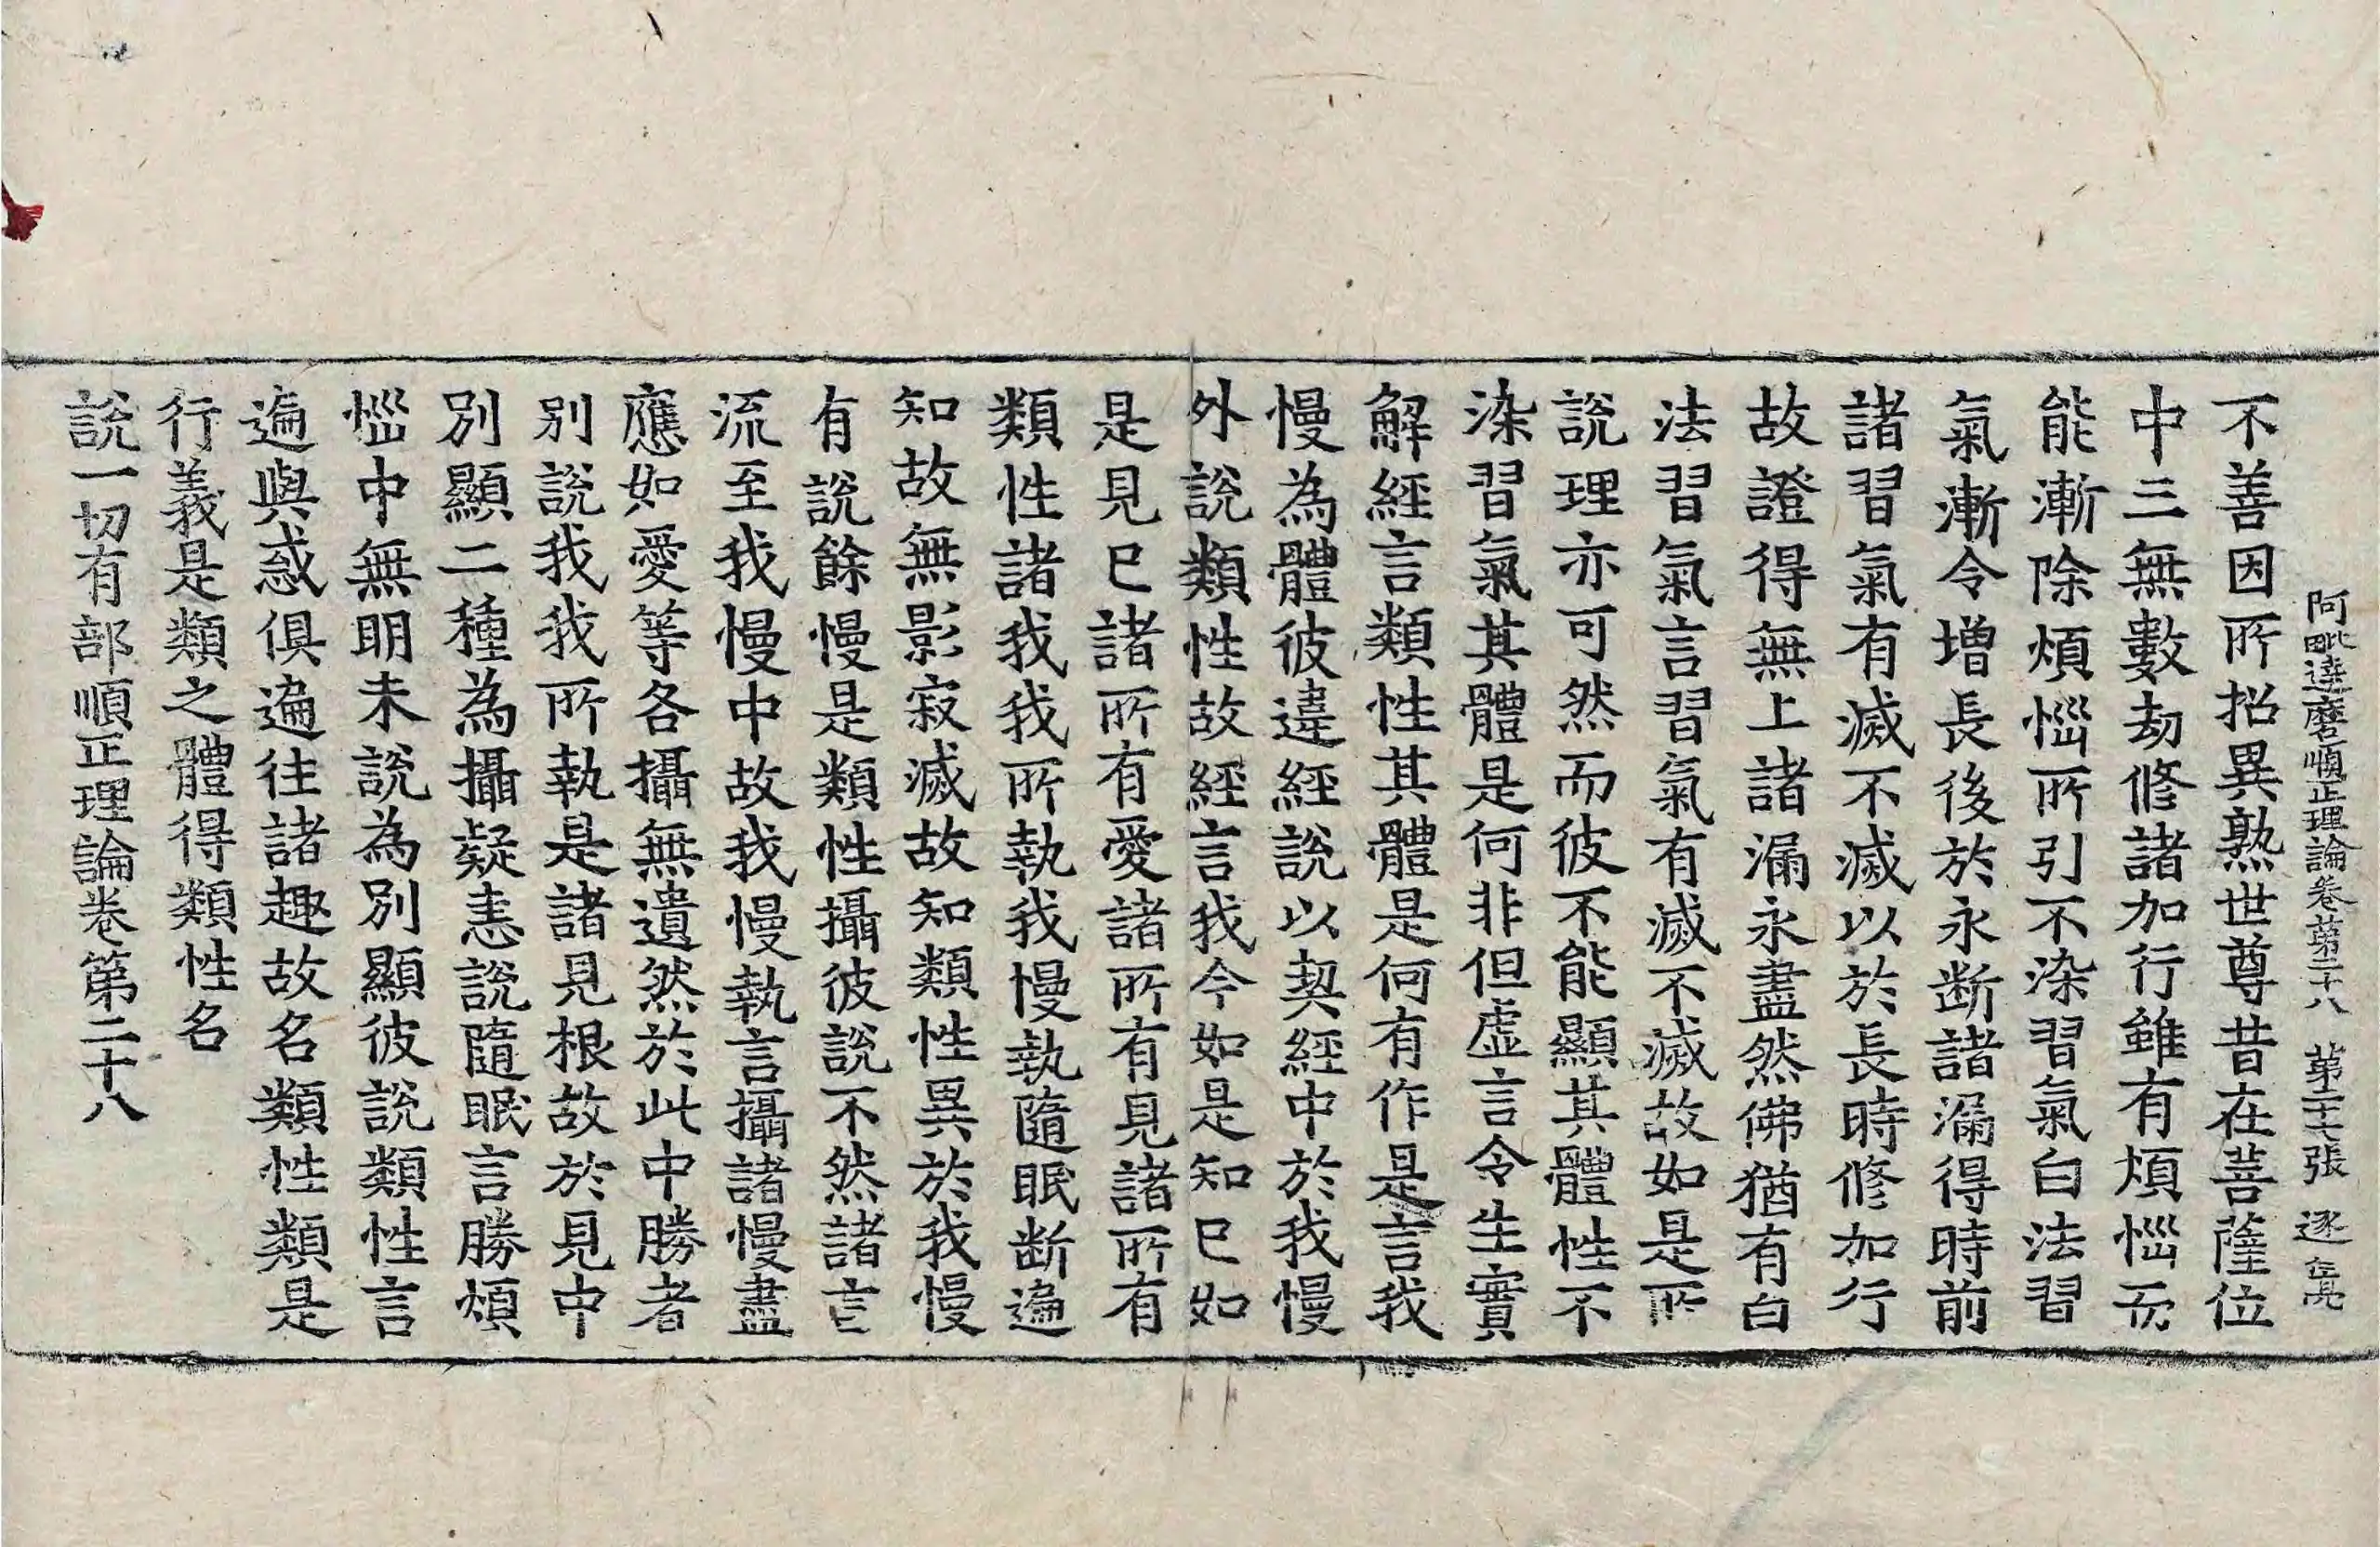 阿毗達磨順正理論卷第二十八 第二十七張 逐
不善因所招異熟世尊昔在菩薩位
中三無數劫修諸加行雖有煩惱而
能漸除煩惱所引不染習氣白法習
氣漸令增長後於永斷諸漏得時前
諸習氣有滅不滅以於長時修加行
故證得無上諸漏永盡然佛猶有白
法習氣言習氣有滅不滅故如是所
說理亦可然而彼不能顯其體性不
染習氣其體是何非但虛言令生實
解經言類性其體是何有作是言我
慢為體彼違經說以契經中於我慢
外說類性故經言我今如是知已如
是見已諸所有愛諸所有見諸所有
類性諸我我所執我慢執隨眠斷遍
知故無影寂滅故知類性異於我慢
有說餘慢是類性攝彼說不然諸言
流至我慢中故我慢執言攝諸慢盡
應如愛等各攝無遺然於此中勝者
別說我我所執是諸見根故於見中
別顯二種為攝疑恚說隨眠言勝煩
惱中無明未說為別顯彼說類性言
遍與惑俱遍往諸趣故名類性類是
行義是類之體得類性名
說一切有部順正理論卷第二十八